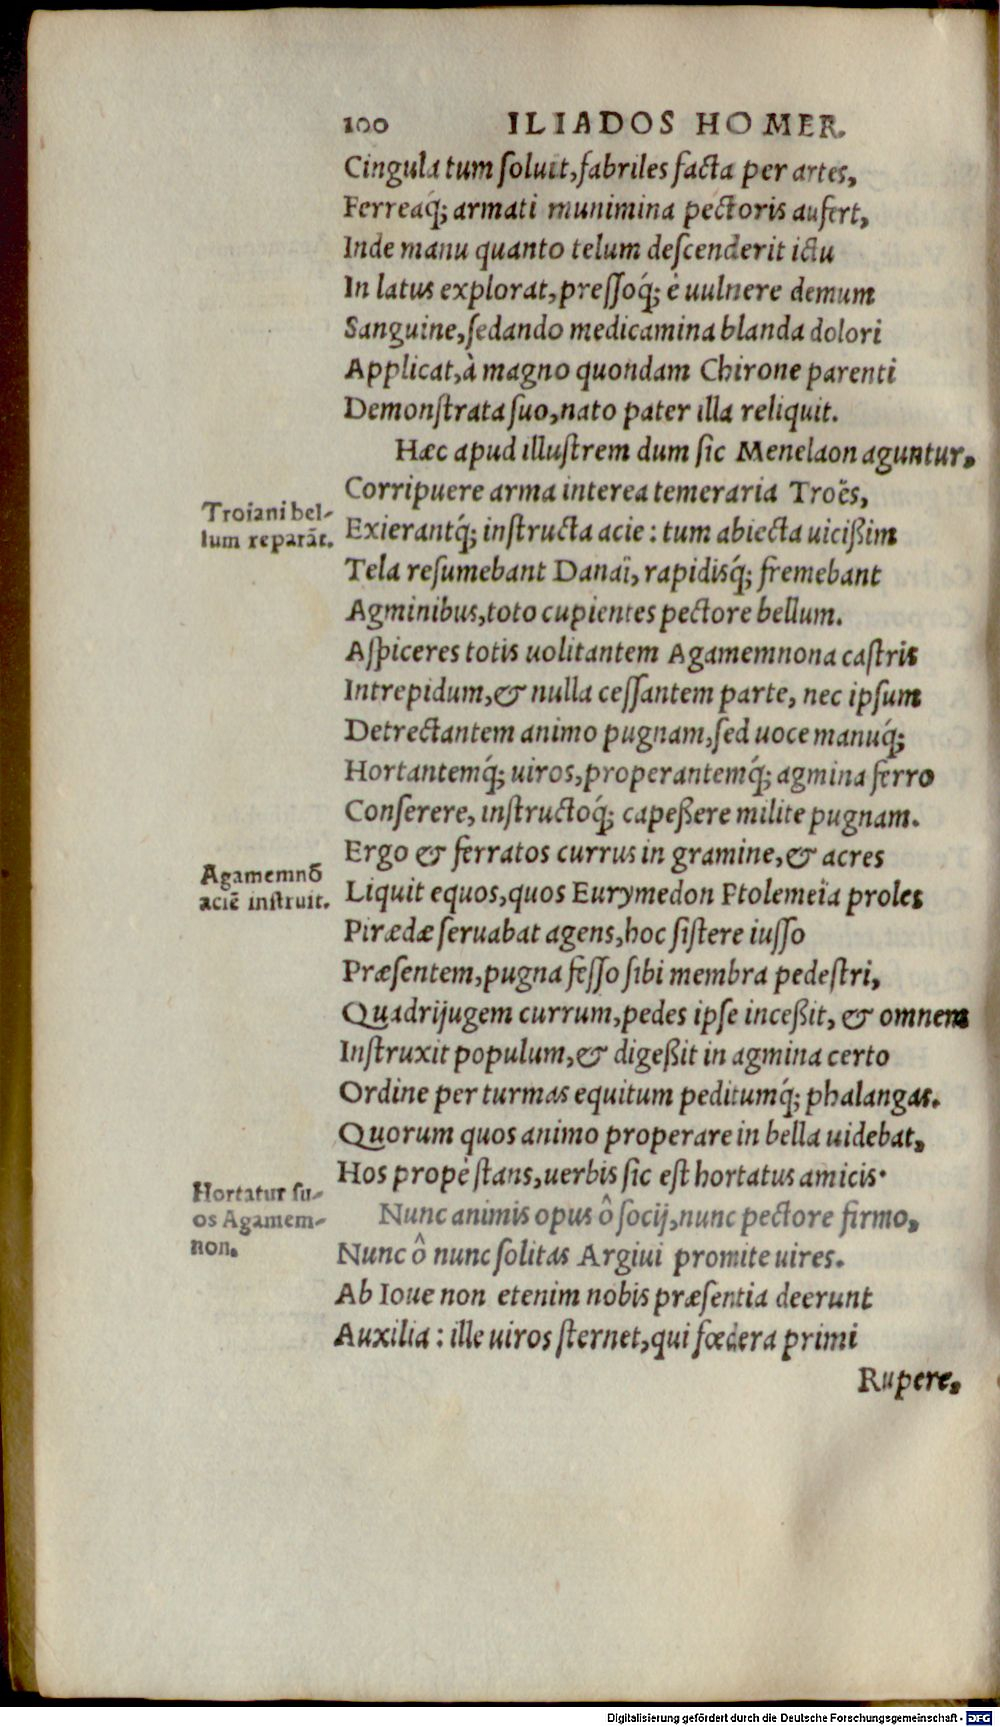 100 ILIADOS HOMER.
Cingula tum ſoluit, fabriles facta per artes,
Ferreaq́; armati munimina pectoris aufert,
Inde manu quanto telum deſcenderit ictu
In latus explorat, preſſoq́; è uulnere demum
Sanguine, ſedando medicamina blanda dolori
Applicat, à magno quondam Chirone parenti
Demonſtrata ſuo, nato pater illa reliquit.
Hæc apud illuſtrem dum ſic Menelaon aguntur,
Corripuere arma interea temeraria Troës,
Troiani bel-
lum reparāt.
Exierantq́; inſtructa acie: tum abiecta uicißim
Tela reſumebant Danaï, rapidisq́; fremebant
Agminibus, toto cupientes pectore bellum.
Aſpiceres totis uolitantem Agamemnona caſtris
Intrepidum, & nulla ceſſantem parte, nec ipſum
Detrectantem animo pugnam, ſed uoce manuq́;
Hortantemq́; uiros, properantemq́; agmina ferro
Conſerere, inſtructoq́; capeßere milite pugnam.
Ergo & ferratos currus in gramine, & acres
Agamemnō
aciē inſtruit.
Liquit equos, quos Eurymedon Ptolemeïa proles
Pirædæ ſeruabat agens, hoc ſiſtere iuſſo
Præſentem, pugna feſſo ſibi membra pedeſtri,
Quadrijugem currum, pedes ipſe inceßit, & omnem
Inſtruxit populum, & digeßit in agmina certo
Ordine per turmas equitum peditumq́; phalangas.
Quorum quos animo properare in bella uidebat,
Hos propè ſtans, uerbis ſic eſt hortatus amicis·
Hortatur ſu-
os Agamem-
non.
Nunc animis opus ô ſocij, nunc pectore firmo,
Nunc ô nunc ſolitas Argiui promite uires.
Ab Ioue non etenim nobis præſentia deerunt
Auxilia: ille uiros ſternet, qui fœdera primi
Rupere,
Digitalisierung gefördert durch die Deutsche Forschungsgemeinschaft - DFG